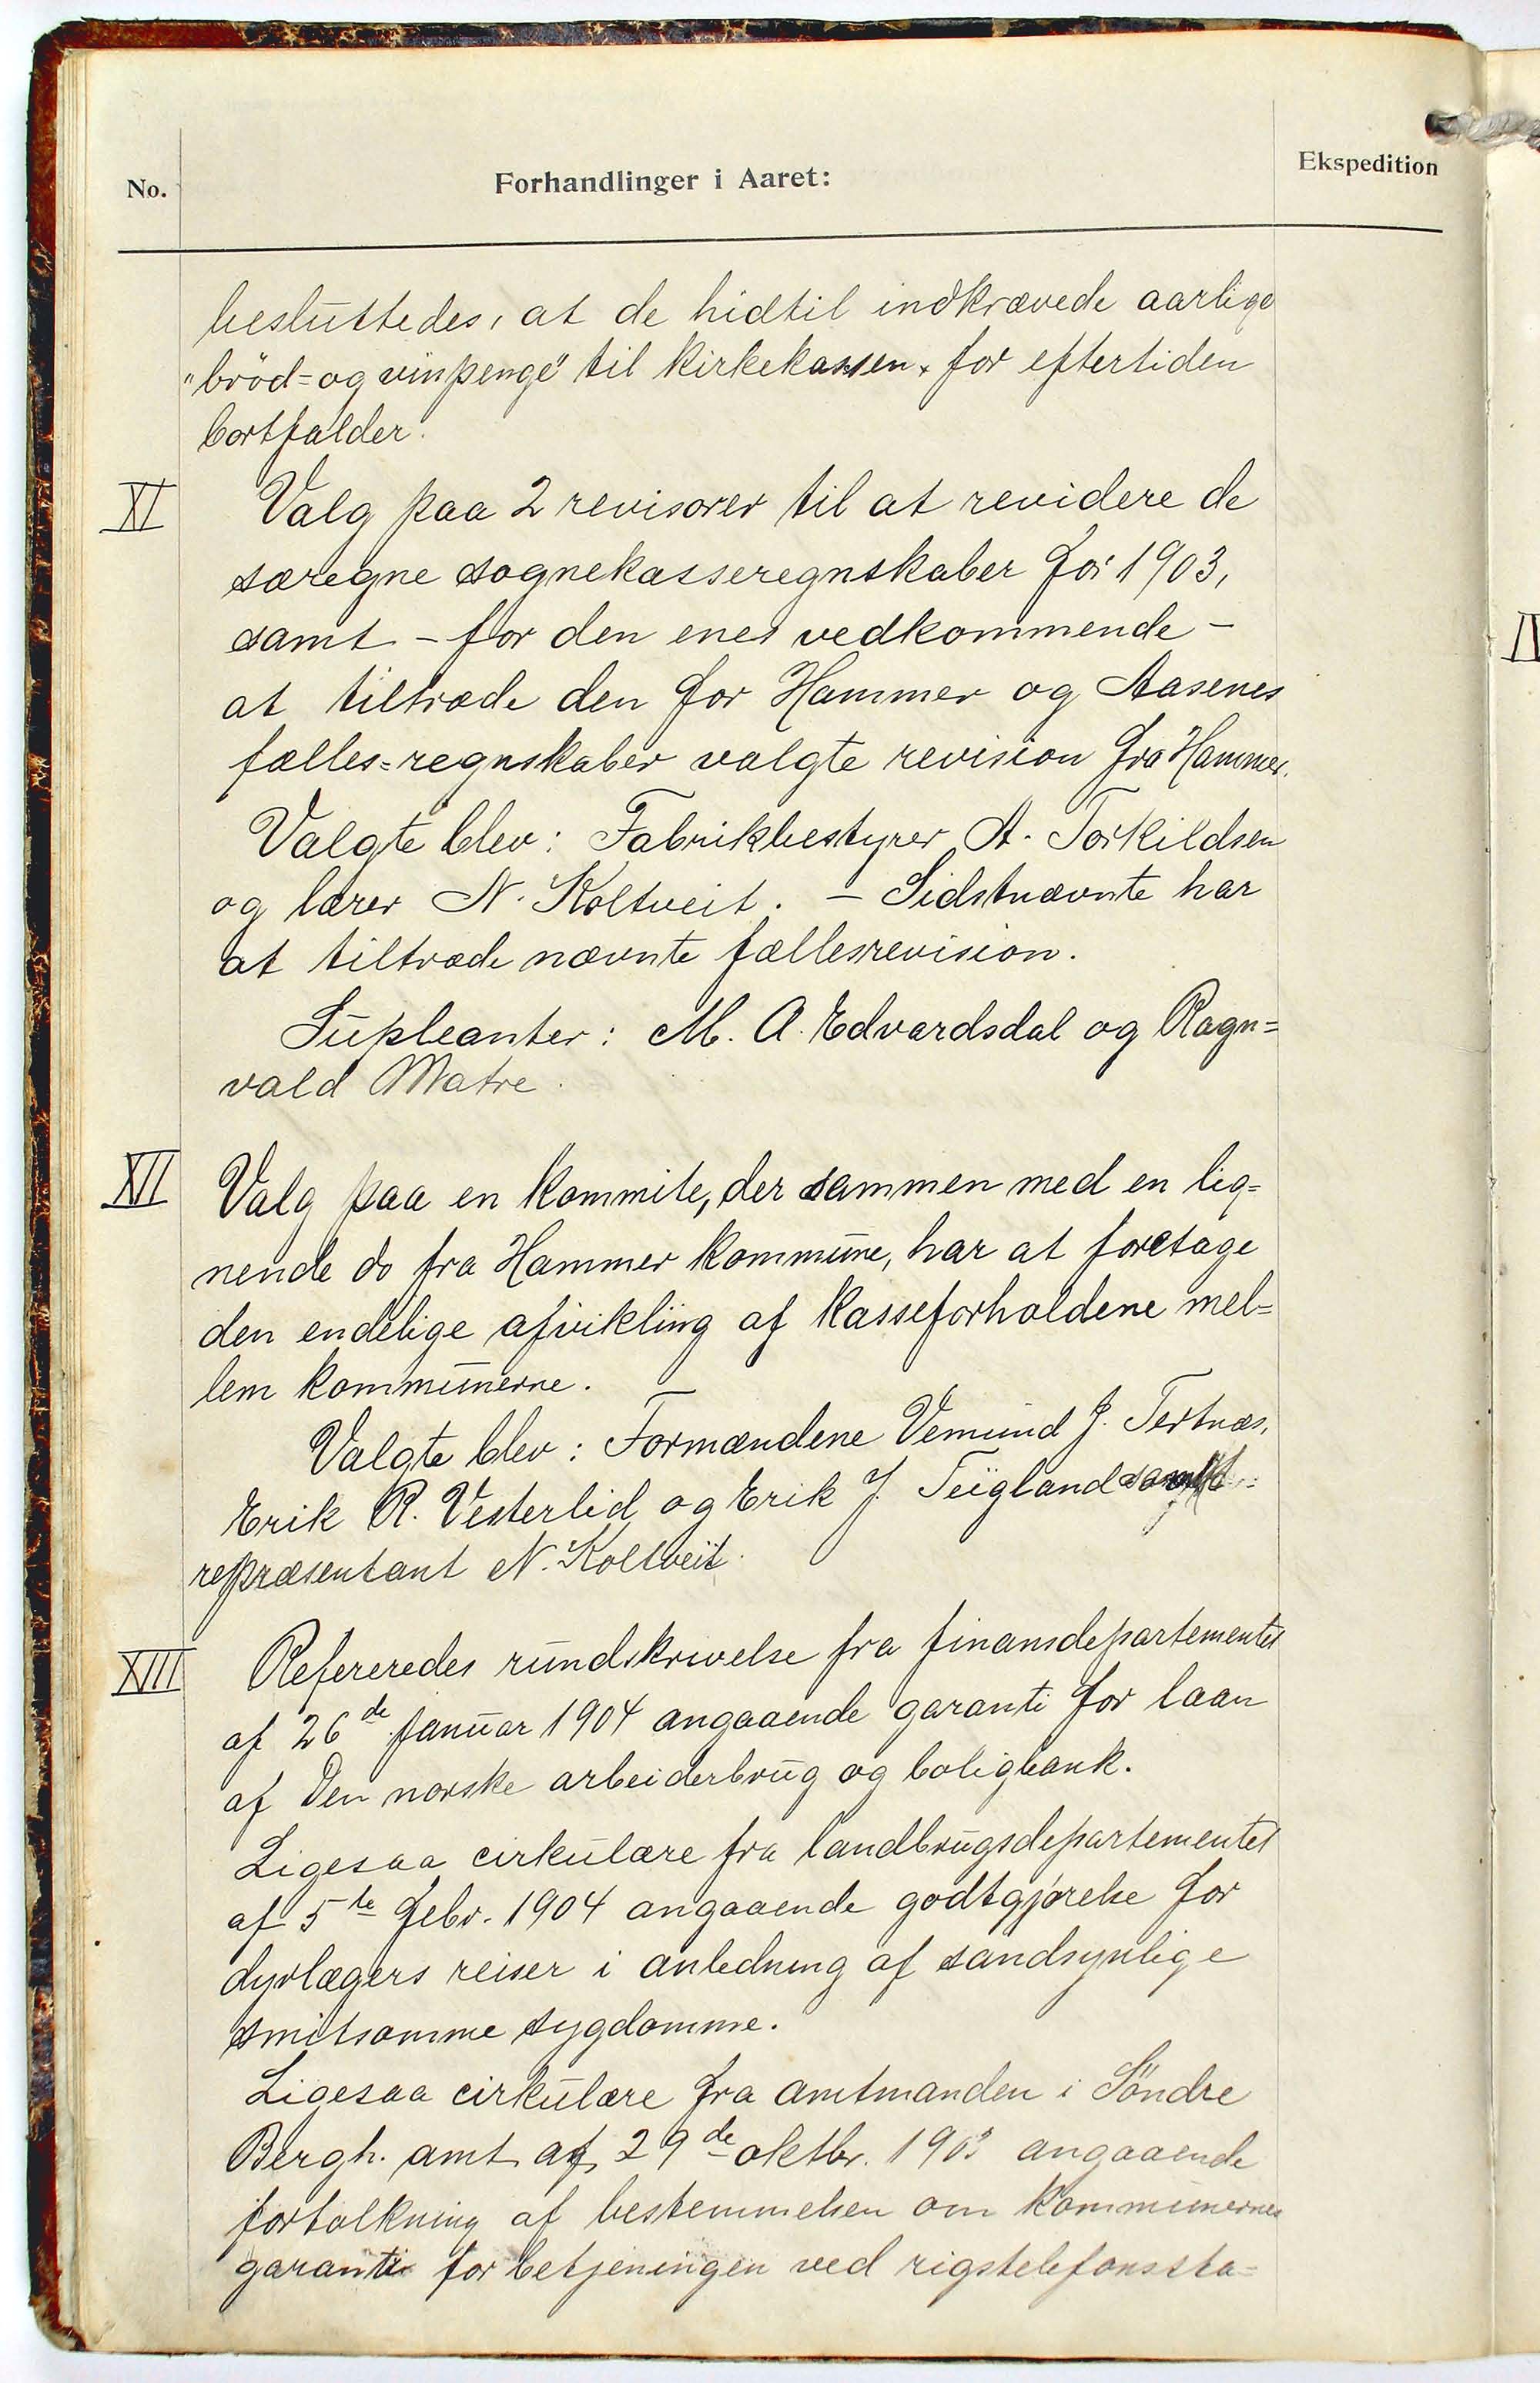 No.
Forhandlinger i Aaret:
Ekspedition
besluttedes, at de hidtil indkrævede aarlige
"bröd= og vinpenge" til kirkekassen, for eftertiden
bortfalder.
XI
Valg paa 2 revisorer til at revidere de
særegne sognekasseregnskaber for 1903,
samt - for den enes vedkommende -
at tiltræde den for Hammer og Aasenes
fælles=regnskaber valgte revision fra Hammer.
Valgte blev: Fabrikbestyrer A. Torkildsen
og lærer N. Koltveit. - Sidstnævnte har
at tiltræde nævnte fællesrevision.
Supleanter: M. A. Edvardsdal og Ragn=
vald Matre.
XII
Valg paa en kommite, der sammen med en lig=
nende do fra Hammer kommune, har at foretage
den endelige afvikling af kasseforholdene mel=
lem kommunerne.
Valgte blev: Formændene Vemund J. Tertnæs,
Erik R. Vesterlid og Erik J. Teigland samt
repræsentant N. Koltveit.
XIII
Refereredes rundskrivelse fra finansdepartementet
af 26de januar 1904 angaaende garanti for laan
af Den norske arbeiderbrug og boligbank.
Ligesaa cirkulære fra landbrugsdepartementet
af 5te febr. 1904 angaaende godtgjørelse for
dyrlægers reiser i anledning af sandsynlige
smitsomme sygdomme.
Ligesaa cirkulære fra amtmanden i Söndre
Bergh. amt af 29de oktbr. 1903 angaaende
fortolkning af bestemmelsen om kommunernes
garanti for betjeningen ved rigstelefonssta=